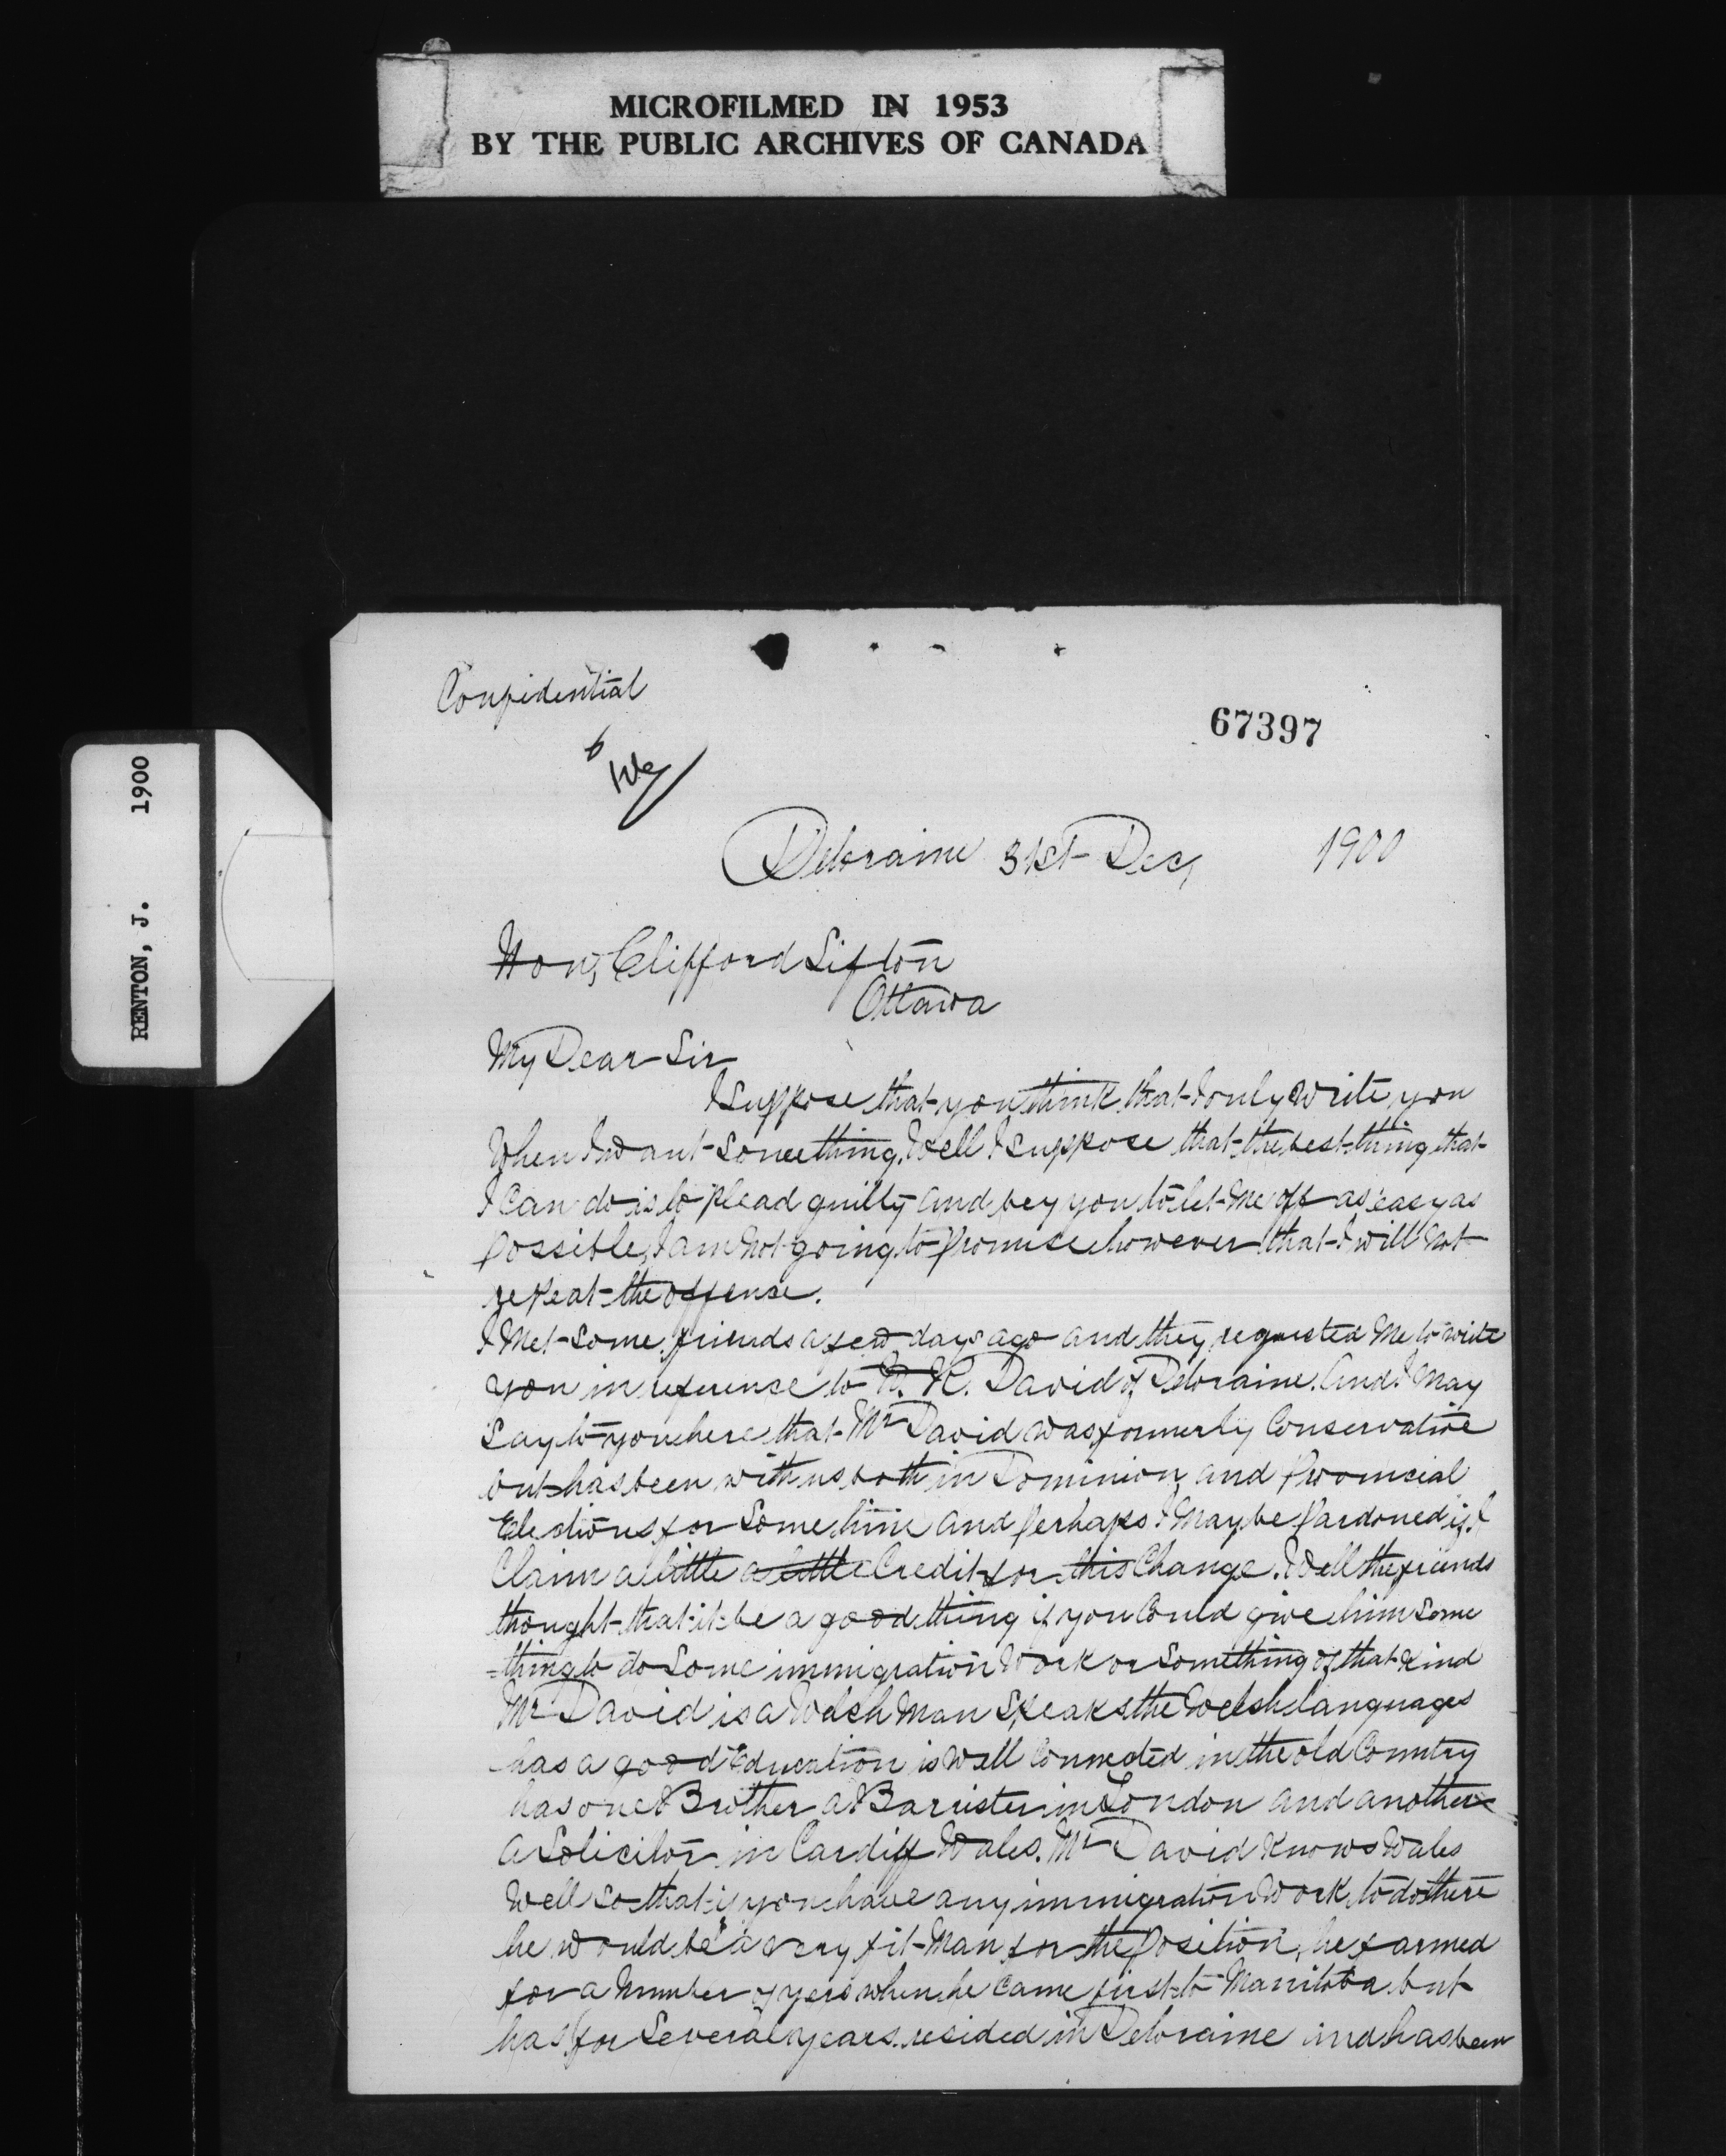 MICROFILMED IN 1953
BY THE PUBLIC ARCHIVES OF CANADA
RENTON, J. 1900
Confidential
67397
Deloraine 31st Dec, 1900
Hon, Clifford Sifton
Ottawa
My Dear Sir
I suppose that you think that I only write you
When I want something. Well I suppose that the best thing that
I can do is to plead guilty and beg you to let me off as easy as
possible, I am not going to promise however that I will not
repeat the offense.
I met some friends a few days ago and they requested me to write
you in reference to R. David of Deloraine. And I may
say to you here that Mr David was formerly Conservative
but has been with us both in Dominion and Provincial
Elections for some time and perhaps I may be pardoned if I
Claim a little a little Credit for this Change. Well the friends
thought that it be a good thing if you Could give him some
=thing to do some immigration work or something of that kind
Mr David is a Welsh man speaks the Welsh languages
has a good Education is well Connected in the old Country
has one Brother a Barrister in London and another
a Solicitor in Cardiff Wales. Mr David knows Wales
well so that if you have any immigration work to do there
he would be a very fit man for the position, he farmed
for a number of yers when he came first to Manitoba but
has for several years resided in Deloraine and has been